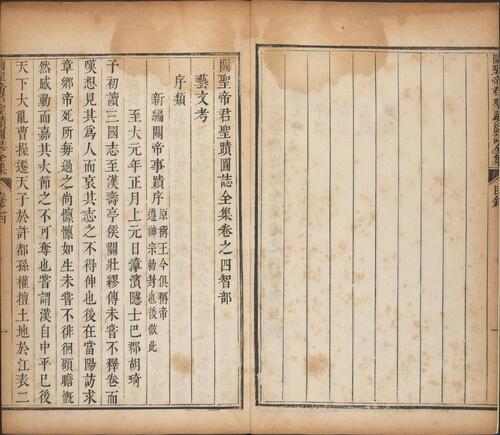 關聖帝君聖蹟圖誌全集卷之四智部
藝文考
序類
新編關帝事蹟序
原稱王今俱稱帝
遵神宗勅封也後倣此
至大元年正月上元日漳濱隱士巴郡胡琦
子初讀三國志至漢壽亭侯關壯繆傳未嘗不釋卷而
嘆想見其爲人而哀其志之不得伸也後在當陽訪求
章鄉帝死所每過之尚懍懍如生未嘗不徘徊顧瞻慨
然感動而嘉其大節之不可奪也嘗謂漢自中平已後
天下大亂曹操遷天子於許都孫權擅土地於江表二